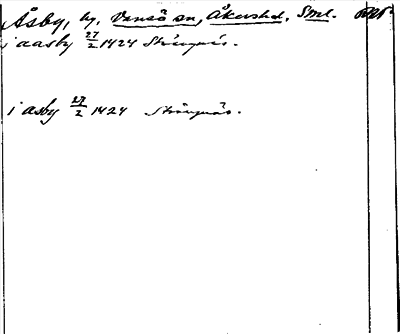 Åsby, by, Vansö sn, Åkershd, Sml.
i aasby 27/2 1424 Strängnäs.
i asby 27/2 1424 Strängnäs.